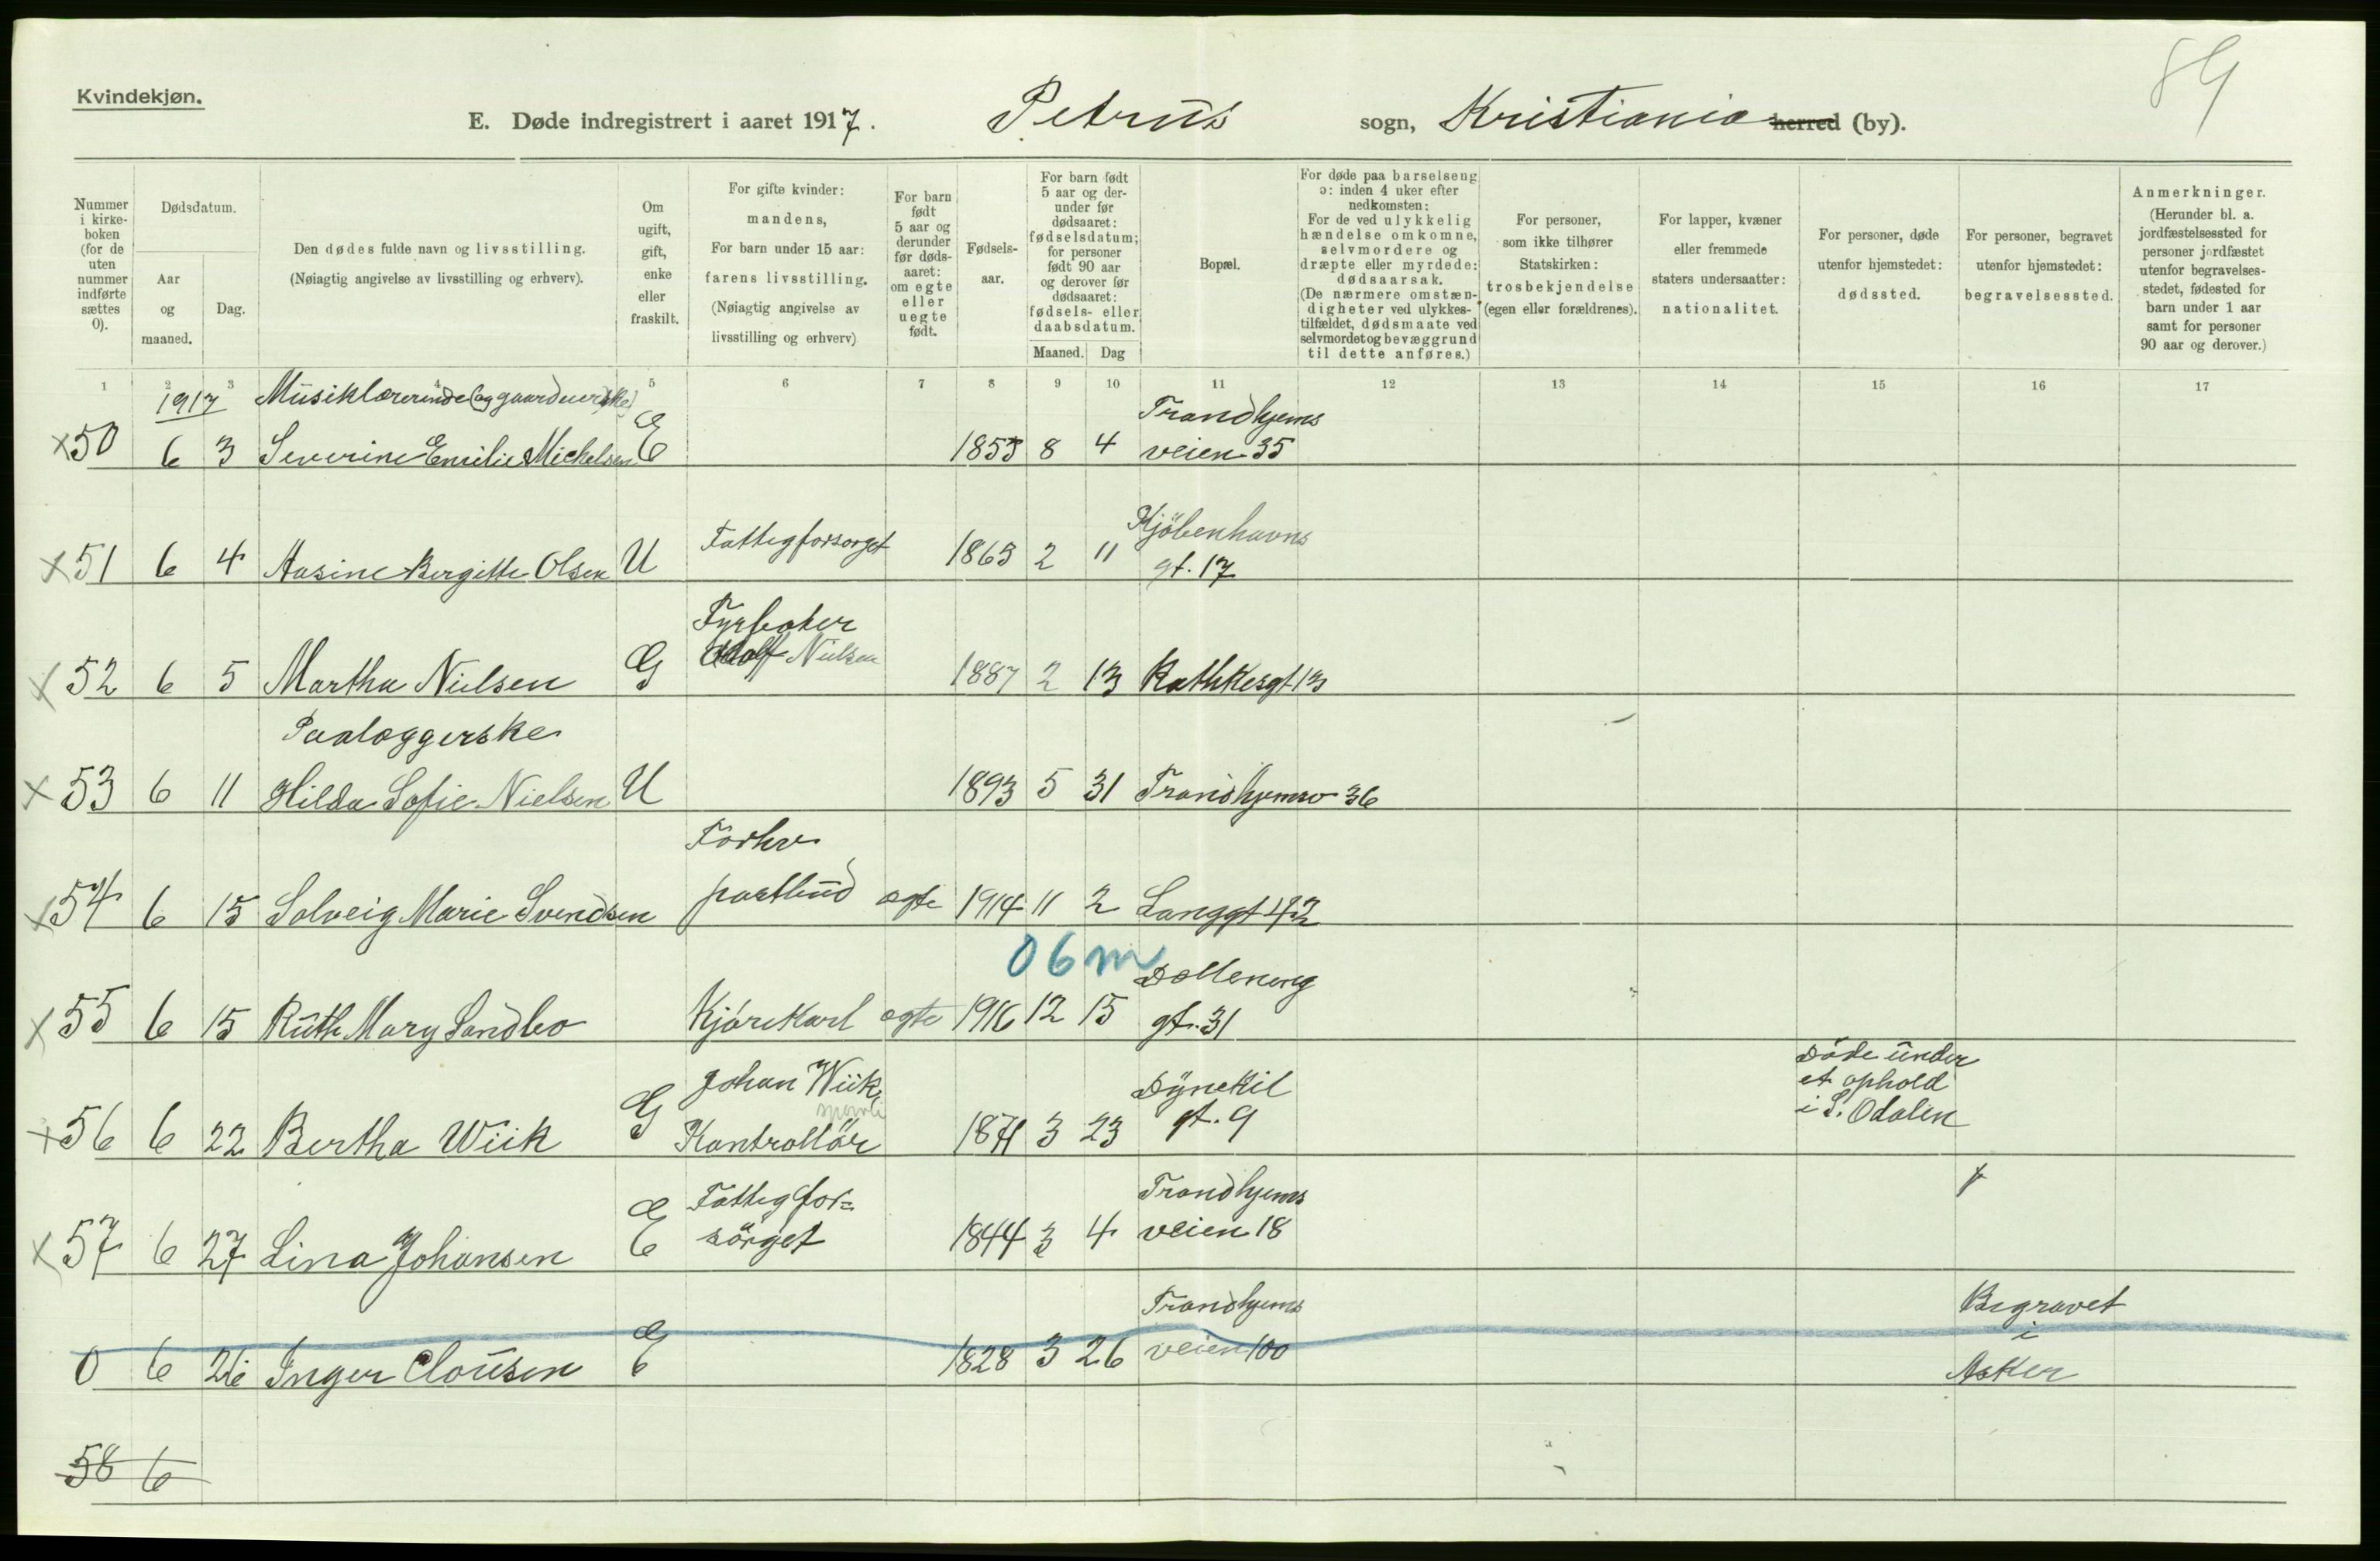 89
Kvindekjøn.
E. Døde indregistrert i aaret 1917. Petrus sogn, Kristiania herred (by).
Nummer i kirke-boken (for de uten nummer indførte sættes 0).
Dødsdatum.
Aar og maaned.
Dag.
Den dødes fulde navn og livsstilling.
(Nøiagtig angivelse av livsstilling og erhverv).
Om ugift, gift, enke eller fraskilt.
For gifte kvinder: mandens,
For barn under 15 aar: farens livsstilling.
(Nøiagtig angivelse av livsstilling og erhverv)
For barn født 5 aar og derunder før døds-aaret: om egte eller uegte født.
Fødsels-aar.
For barn født 5 aar og der-under før dødsaaret: fødselsdatum; for personer født 90 aar og derover før dødsaaret: fødsels- eller daabsdatum.
Maaned. Dag
Bopæl.
For døde paa barselseng ɔ: inden 4 uker efter nedkomsten:
For de ved ulykkelig hændelse omkomne, selvmordere og dræpte eller myrdede: dødsaarsak.
(De nærmere omstæn-digheter ved ulykkes-tilfældet, dødsmaate ved selvmordet og bevæggrund til dette anføres.)
For personer, som ikke tilhører Statskirken: trosbekjendelse (egen eller forældrenes).
For lapper, kvæner eller fremmede staters undersaatter: nationalitet.
For personer, døde utenfor hjemstedet: dødssted.
For personer, begravet utenfor hjemstedet: begravelsessted.
Anmerkninger.
(Herunder bl. a. jordfæstelsessted for personer jordfæstet utenfor begravelses-stedet, fødested for barn under 1 aar samt for personer 90 aar og derover.)
1 2 3 4 5 6 7 8 9 10 11 12 13 14 15 16 17
1917 Musiklærerinde (og gaardeierske) Trondhjems
x50 6 3 Severine Emilie Michelsen E 1853 8 4 veien 35
Fattigforsørget Kjöbenhavns
x51 6 4 Aasine Bergitte Olsen U 1863 2 11 gt. 17
Fyrbøter
Adolf Nielsen
x52 6 5 Martha Nielsen G 1887 2 13 Rathkesgt 13
Paalæggerske
x53 6 11 Hilda Sofie Nielsen U 1893 5 31 Trondhjemsv 36
Forhv
x54 6 15 Solveig Marie Svendsen postbud ægte 1914 11 2 Langgt 42
06m Dælleneng
x55 6 15 Ruth Mary Sandbo Kjörekarl ægte 1916 12 15 gt. 31
Johan Wiik, Dynekil Döde under et ophold i S. Odalen
x56 6 22 Bertha Wiik G Kontrollör 1871 3 23 gt. 9
Fattigfor= Trondhjems
x57 6 27 Lina Johansen E sörget 1844 3 4 veien 18
Trondhjems Begravet
0 6 26 Inger Clousen E 1828 3 26 veien 100 i
Asker
58 6